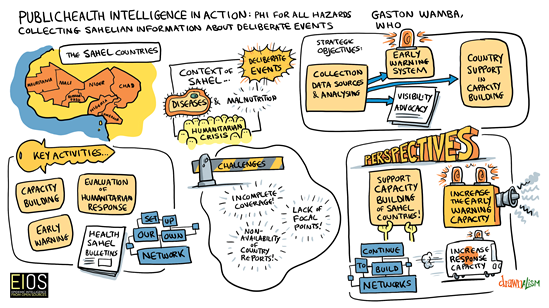 PUBLIC HEALTH INTELLIGENCE IN ACTION: PHI FOR ALL HAZARDS
COLLECTING SAHELIAN INFORMATION ABOUT DELIBERATE EVENTS
GASTON WAMBA,
WHO
THE SAHEL COUNTRIES
MAURITANIA
MALI
NIGER
CHAD
CONTEXT OF
SAHEL...
DELIBERATE
EVENTS
DISEASES
& MALNUTRITION
HUMANITARIAN
CRISIS
STRATEGIC
OBJECTIVES!
COLLECTION
DATA SOURCES
& ANALYSING
EARLY
WARNING
SYSTEM
VISIBILITY
ADVOCACY
COUNTRY
SUPPORT
IN
CAPACITY
BUILDING
KEY ACTIVITIES...
CAPACITY
BUILDING
EVALUATION
OF
HUMANITARIAN
RESPONSE
EARLY
WARNING
HEALTH
SAHEL
BULLETINS
SET UP
OUR OWN
NETWORK
CHALLENGES
INCOMPLETE
COVERAGE!
LACK OF
FOCAL
POINTS!
NON-
AVAILABILITY
OF
COUNTRY
REPORTS!
PERSPECTIVES
SUPPORT
CAPACITY
BUILDING
OF SAHEL
COUNTRIES!
INCREASE
THE EARLY
WARNING
CAPACITY
CONTINUE
TO BUILD
NETWORKS
INCREASE
RESPONSE
CAPACITY
EIOS
drawnalism